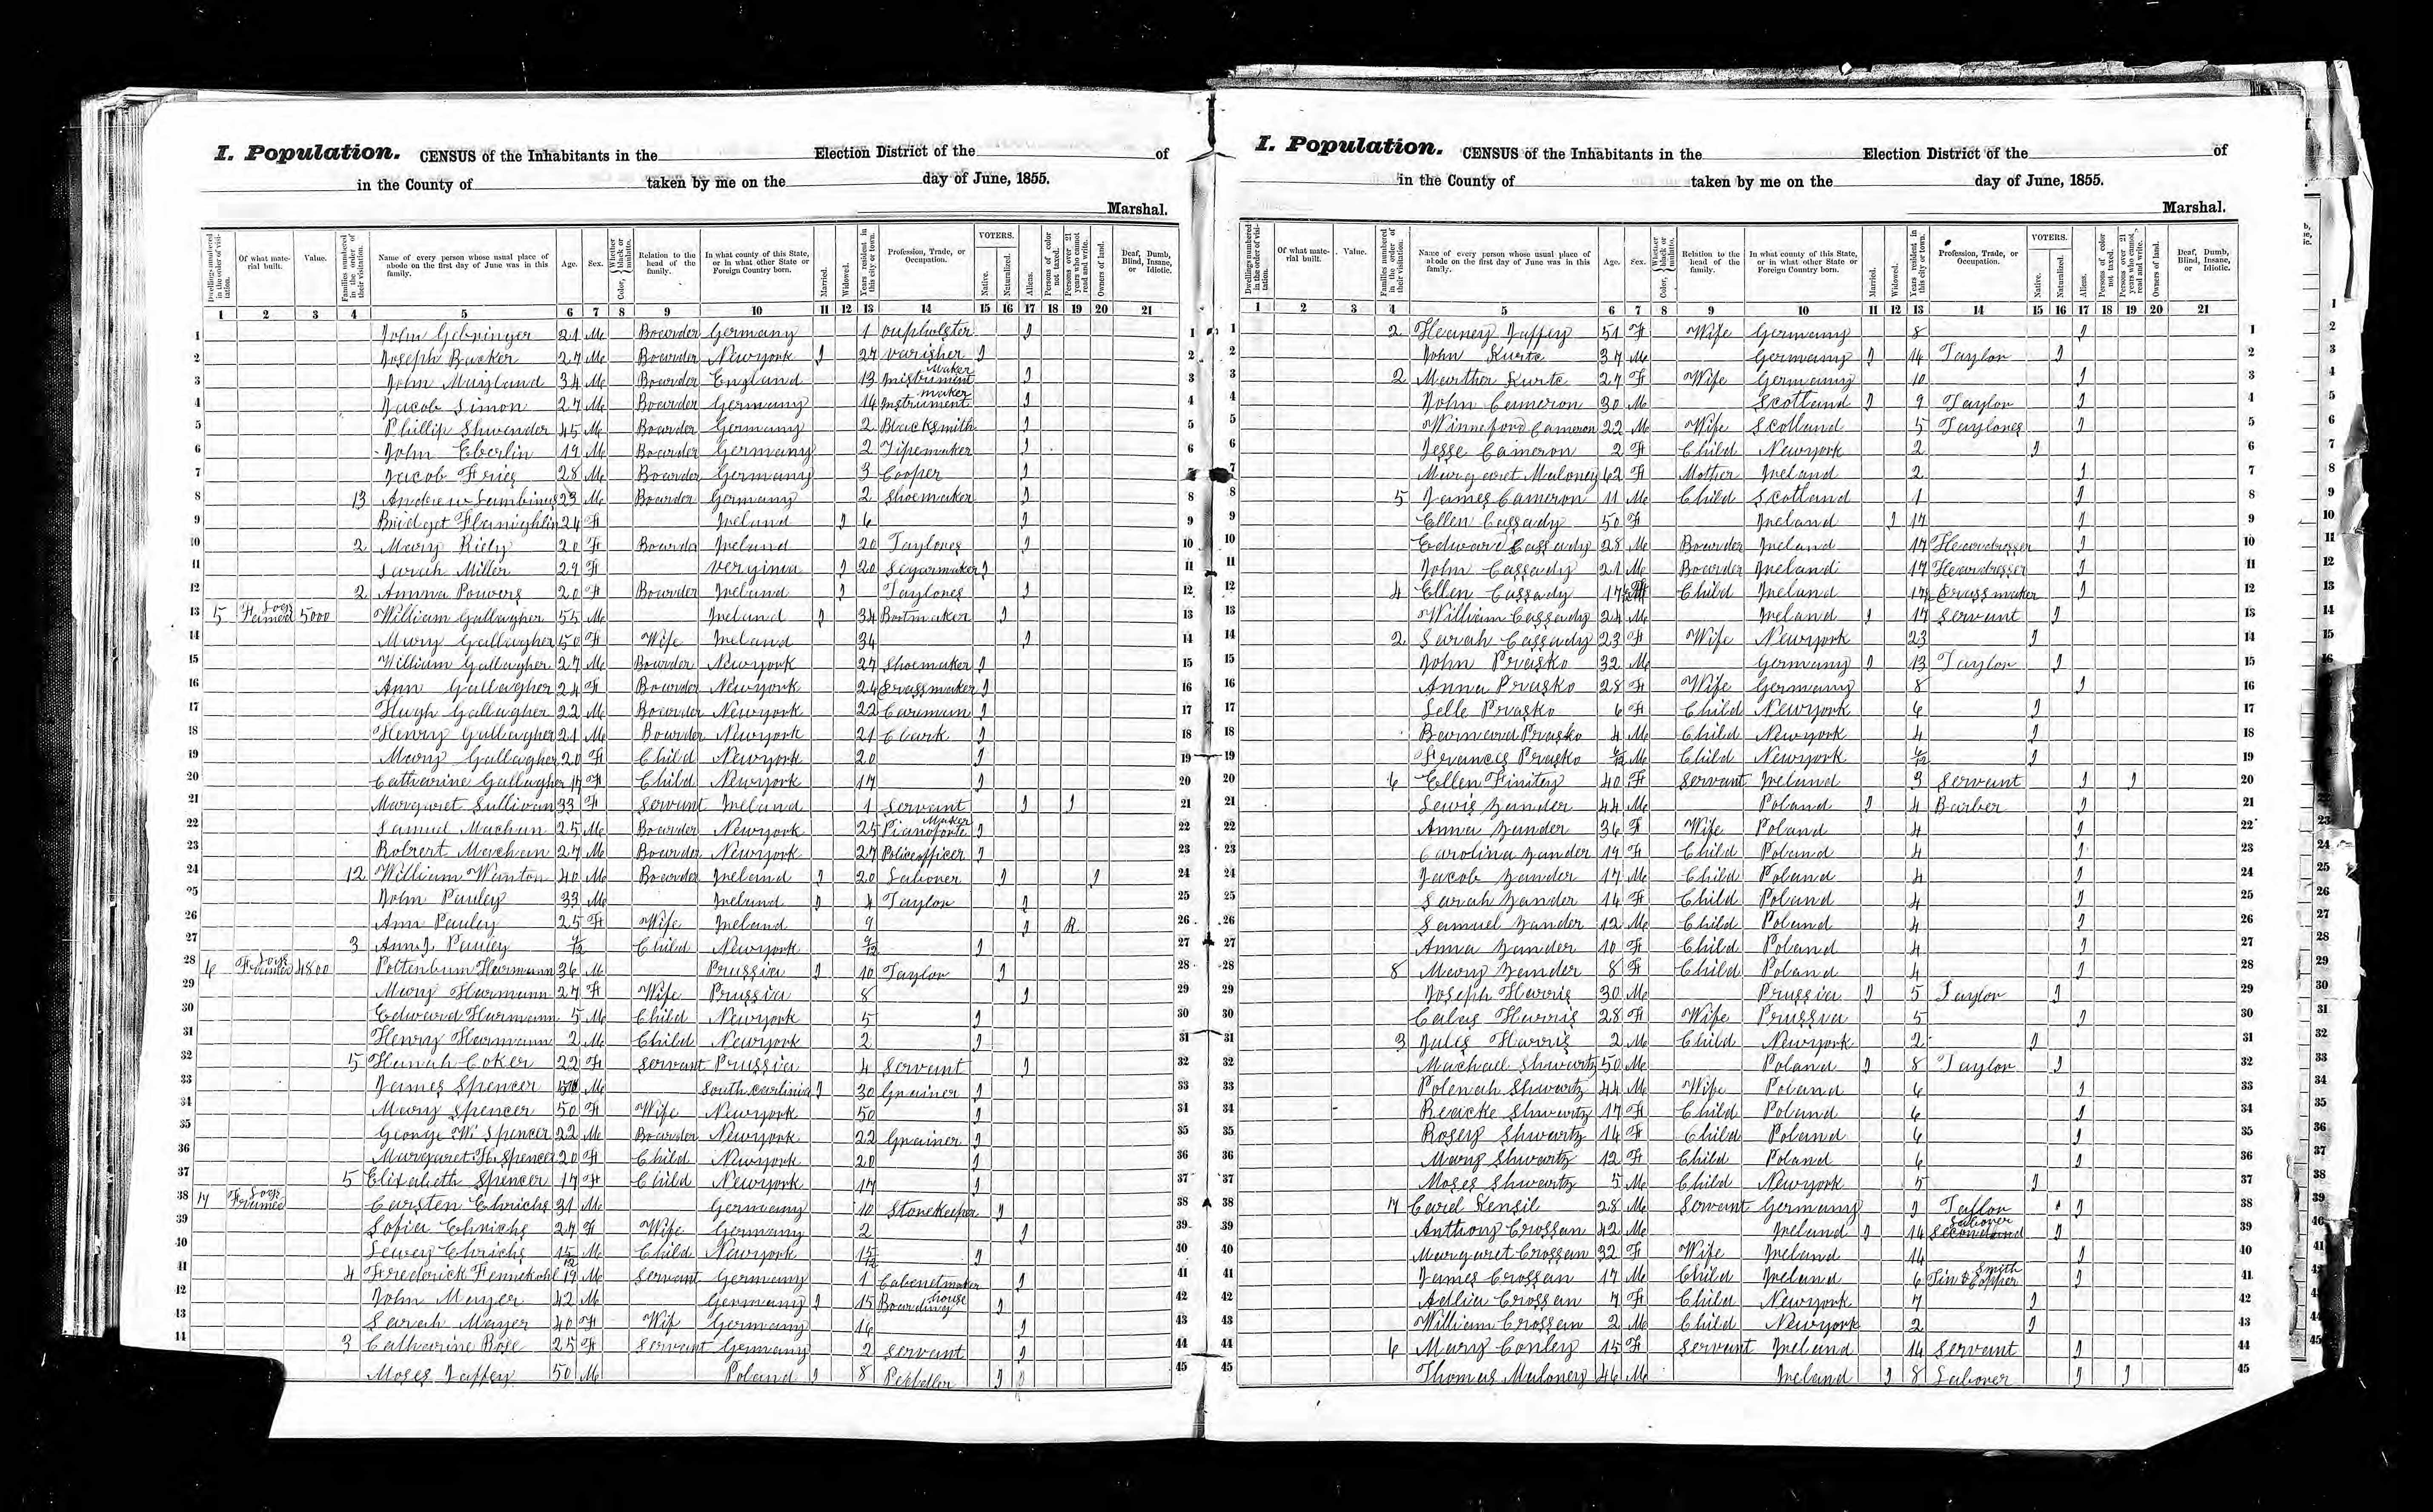 I. Population. CENSUS of the Inhabitants in the Election District of the of
in the County of taken by me on the day of June, 1855.
Marshal.
Dwellings numbered in the order of visitation. Of what material built. Value. Families numbered in the order of their visitation. Name of every person whose usual place of abode on the first day of June was in this family. Age. Sex. Color, Whether black or mulatto. Relation to the head of the family. In what county of this State, or in what other State or Foreign Country born. Married. Widowed. Years resident in this city or town. Profession, Trade, or Occupation. VOTERS. Native. Naturalized. Aliens. Persons of color not taxed. Persons over 21 years who cannot read and write. Owners of land. Deaf, Dumb, Blind, Insane, or Idiotic.
1 2 3 4 5 6 7 8 9 10 11 12 13 14 15 16 17 18 19 20 21
1 John Gebringer 21 M Boarder Germany 1 1
2 Joseph Backer 27 M Boarder Newyork 1 27 varisher 1 2
3 John 34 M Boarder England 13 instrument Maker 1 3
4 Jacob Simon 27 M Boarder Germany 14 instrument maker 1 4
5 Phillip Shwender 45 M Boarder Germany 2 Blacksmith 1 5
6 John Eberlin 19 M Boarder Germany 2 Pipemaker 1 6
7 Jacob Fries 28 M Boarder Germany 3 Cooper 1
8 13 Andrew 23 M Boarder Germany 2 Shoemaker 1 8
9 Bridget 24 F Ireland 1 6 1 9
10 2 Mary Riely 20 F Boarder Ireland 20 Taylores 1 10
11 Sarah Miller 29 F verginia 1 20 Segarmaker 1 11
12 2 Amna Powers 20 F Boarder Ireland 1 Taylores 1 12
13 5 5000 William Gallagher 55 M Ireland 1 34 Bootmaker 1 13
14 Mary Gallagher 50 F Wife Ireland 34 1 14
15 William Gallagher 27 M Boarder Newyork 27 Shoemaker 1 15
16 Ann Gallagher 24 F Boarder Newyork 24 Drassmaker 1 16
17 Hugh Gallagher 22 M Boarder Newyork 22 Carman 1 17
18 Henry Gallagher 21 M Boarder Newyork 21 Clark 1 18
19 Mary Gallagher 20 F Child Newyork 20 1 19
20 Catharine Gallagher 17 F Child Newyork 17 1 20
21 Margaret Sullivan 33 F Servant Ireland 1 Servant 1 1 21
22 Samuel Machan 25 M Boarder Newyork 25 Pianoforte Maker 1 22
23 Robrert Machan 27 M Boarder Newyork 27 Policeofficer 1 23
24 12 William Wanton 40 M Boarder Ireland 1 20 Laborer 1 1 24
25 John Pauley 33 M Ireland 1 4 Taylor 1 25
26 Ann Pauley 25 F Wife Ireland 9 1 R 26
27 3 Ann J Pauley Child Newyork 1 27
28 6 4800 Poltenbum Harmann 36 M Prussia 1 10 Taylor 1 28
29 Mary Harmann 27 F Wife Prussia 8 1 29
30 Edward Harmann 5 M Child Newyork 5 1 30
31 Henry Harmann 2 M Child Newyork 2 1 31
32 5 Hanah Coker 22 F Servant Prussia 4 Servant 1 32
33 James Spencer M South carlinia 1 30 Grainer 1 33
34 Mary Spencer 50 F Wife Newyork 50 1 34
35 George W. Spencer 22 M Boarder Newyork 22 Grainer 1 35
36 Margaret H. Spencer 20 F Child Newyork 20 1 36
37 5 Elizabeth Spencer 17 F Child Newyork 17 1 37
38 7 Framed Carsten Ehrichs 31 M Germany 10 StoreKeeper 1 38
39 Sofia Ehrichs 27 F Wife Germany 2 1 39
40 Lewey Ehrichs 15/12 M Child Newyork 15/12 1 40
41 4 Frederick 19 M Servant Germany 1 Cabenetmaker 1 41
42 John Mayer 42 M Germany 1 15 Boarding house 1 42
43 Sarah Mayer 40 F Wif Germany 16 1 43
44 3 Catharine Rose 25 F Servant Germany 2 Servant 1 44
Moses Jaffey 50 M Poland 1 8 Peddeller 1 1 45
I. Population. CENSUS of the Inhabitants in the Election District of the of
in the County of taken by me on the day of June, 1855.
Marshal.
Dwellings numbered in the order of visitation. Of what material built. Value. Families numbered in the order of their visitation. Name of every person whose usual place of abode on the first day of June was in this family. Age. Sex. Color, Whether black or mulatto. Relation to the head of the family. In what county of this State, or in what other State or Foreign Country born. Married. Widowed. Years resident in this city or town. Profession, Trade, or Occupation. VOTERS. Native. Naturalized. Aliens. Persons of color not taxed. Persons over 21 years who cannot read and write. Owners of land. Deaf, Dumb, Blind, Insane, or Idiotic.
1 2 3 4 5 6 7 8 9 10 11 12 13 14 15 16 17 18 19 20 21
1 2 Heaney Jaffey 51 F Wife Germany 8 1 1
2 John Kurte 37 M Germany 1 14 Taylor 1 2
3 2 Marther Kurte 27 F Wife Germany 10 1 3
4 John Cameron 30 M Scotland 1 9 Taylor 1 4
5 Winneford Cameron 22 M Wife Scotland 5 Taylores 1 5
6 Jesse Cameron 2 F Child Newyork 2 1 6
7 Margaret Maloney 62 F Mother Ireland 2 1 7
8 5 James Cameron 11 M Child Scotland 1 1 8
9 Ellen Cassady 50 F Ireland 1 17 1 9
10 Edward Cassady 28 M Boarder Ireland 17 Heardresser 1 10
11 John Cassady 21 M Boarder Ireland 17 Heardresser 1 11
12 4 Ellen Cassady 17 F Child Ireland Drassmaker 1 12
13 William Cassady 24 M Ireland 1 17 Servant 1 13
14 2 Sarah Cassady 23 F Wife Newyork 23 1 14
15 John Prasko 32 M Germany 1 13 Taylor 1 15
16 Anna Prasko 28 F Wife Germany 8 1 16
17 Selle Prasko 6 F Child Newyork 6 1 17
18 Barnard Prasko 4 M Child Newyork 4 1 18
19 Francis Prasko M Child Newyork 1 19
20 6 Ellen Finitey 40 F Servant Ireland 3 Servant 1 1 20
21 Lewis Zander 44 M Poland 1 4 Barber 1 21
22 Anna Zander 36 F Wife Poland 4 1 22
23 Carolina Zander 19 F Child Poland 4 1 23
24 Jacob Zander 17 M Child Poland 4 1 24
25 Sarah Zander 14 F Child Poland 4 1 25
26 Samuel Zander 12 M Child Poland 4 1 26
27 Anna Zander 10 F Child Poland 4 1 27
28 8 Mary Zander 8 F Child Poland 4 1 28
29 Joseph Harris 30 M Prussia 1 5 Taylor 1 29
30 Calas Harris 28 F Wife Prussia 5 1 30
31 3 Jules Harris 2 M Child Newyork 2 1 31
32 Machael Shwartz 50 M Poland 1 8 Taylor 1 32
33 Polenah Shwartz 44 M Wife Poland 6 1 33
34 Reacke Shwartz 17 F Child Poland 6 1 34
35 Rosey Shwartz 14 F Child Poland 6 1 35
36 Mary Shwartz 12 F Child Poland 6 1 36
37 Moses Shwartz 5 M Child Newyork 5 1 37
38 7 Carel Kensil 28 M Servant Germany 1 Taylor 1 38
39 Anthony Crossan 42 M Ireland 1 14 Laborer 1 39
40 Margaret Crossan 32 F Wife Ireland 14 1 40
41 James Crossan 17 M Child Ireland 6 Tin & Copper Smith 1 41
42 Adlia Crossan 7 F Child Newyork 7 1 42
43 William Crossan 2 M Child Newyork 2 1 43
44 6 Mary Conley 15 F Servant Ireland 14 Servant 1 44
45 Thomas Maloney 46 M Ireland 1 8 Laborer 1 1 45